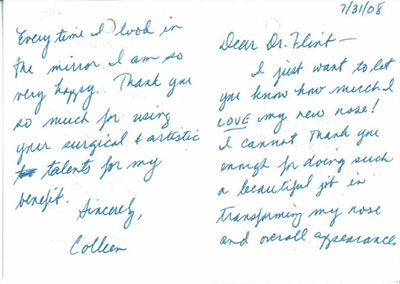 7/31/08
Dear Dr. Flint —
I just want to let
you know how much I
LOVE my new nose!
I cannot thank you
enough for doing such
a beautiful job in
transforming my nose
and overall appearance.
Every time I look in
the mirror I am so
very happy. Thank you
so much for using
your surgical & artistic
talents for my
benefit.
Sincerely,
Colleen